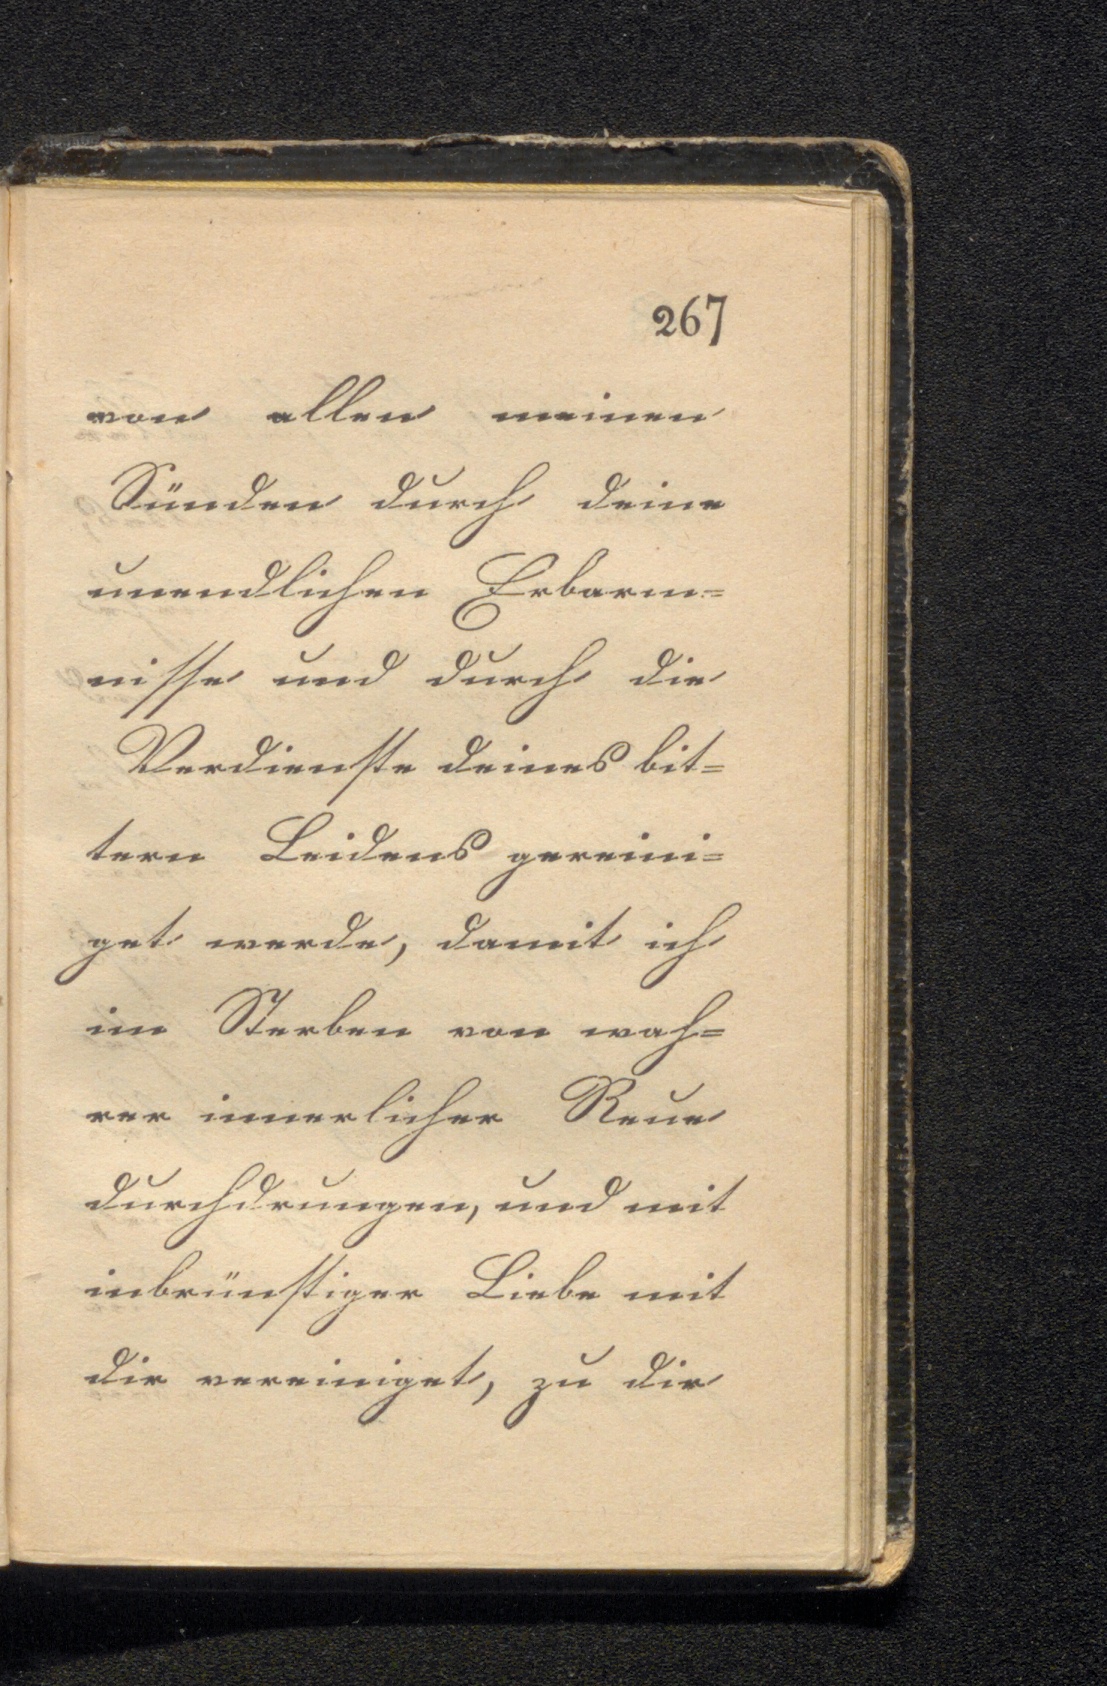 267
von allen meinen
Sünden durch deine
unendlichen Erbarm=
nisse und durch die
Verdienste deines bit=
tern Leidens gereini=
get werde, damit ich
im Sterben von wah=
rer innerlicher Reue
durchdrungen, und mit
inbrünstiger Liebe mit
dir vereiniget, zu dir